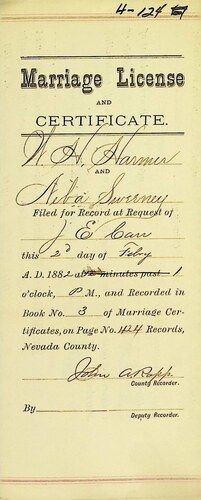 4-124
Marriage License
AND
CERTIFICATE.
W. H. Harmer
AND
Sweeney
Filed for Record at Request of
J E Carr
this 2d day of Feby
A. D. 1882 at 12 minutes past 1
o'clock, P M., and Recorded in
Book No. 3 of Marriage Cer-
tificates, on Page No. 424 Records,
Nevada County.
John A Rapp.
County Recorder.
By
Deputy Recorder.